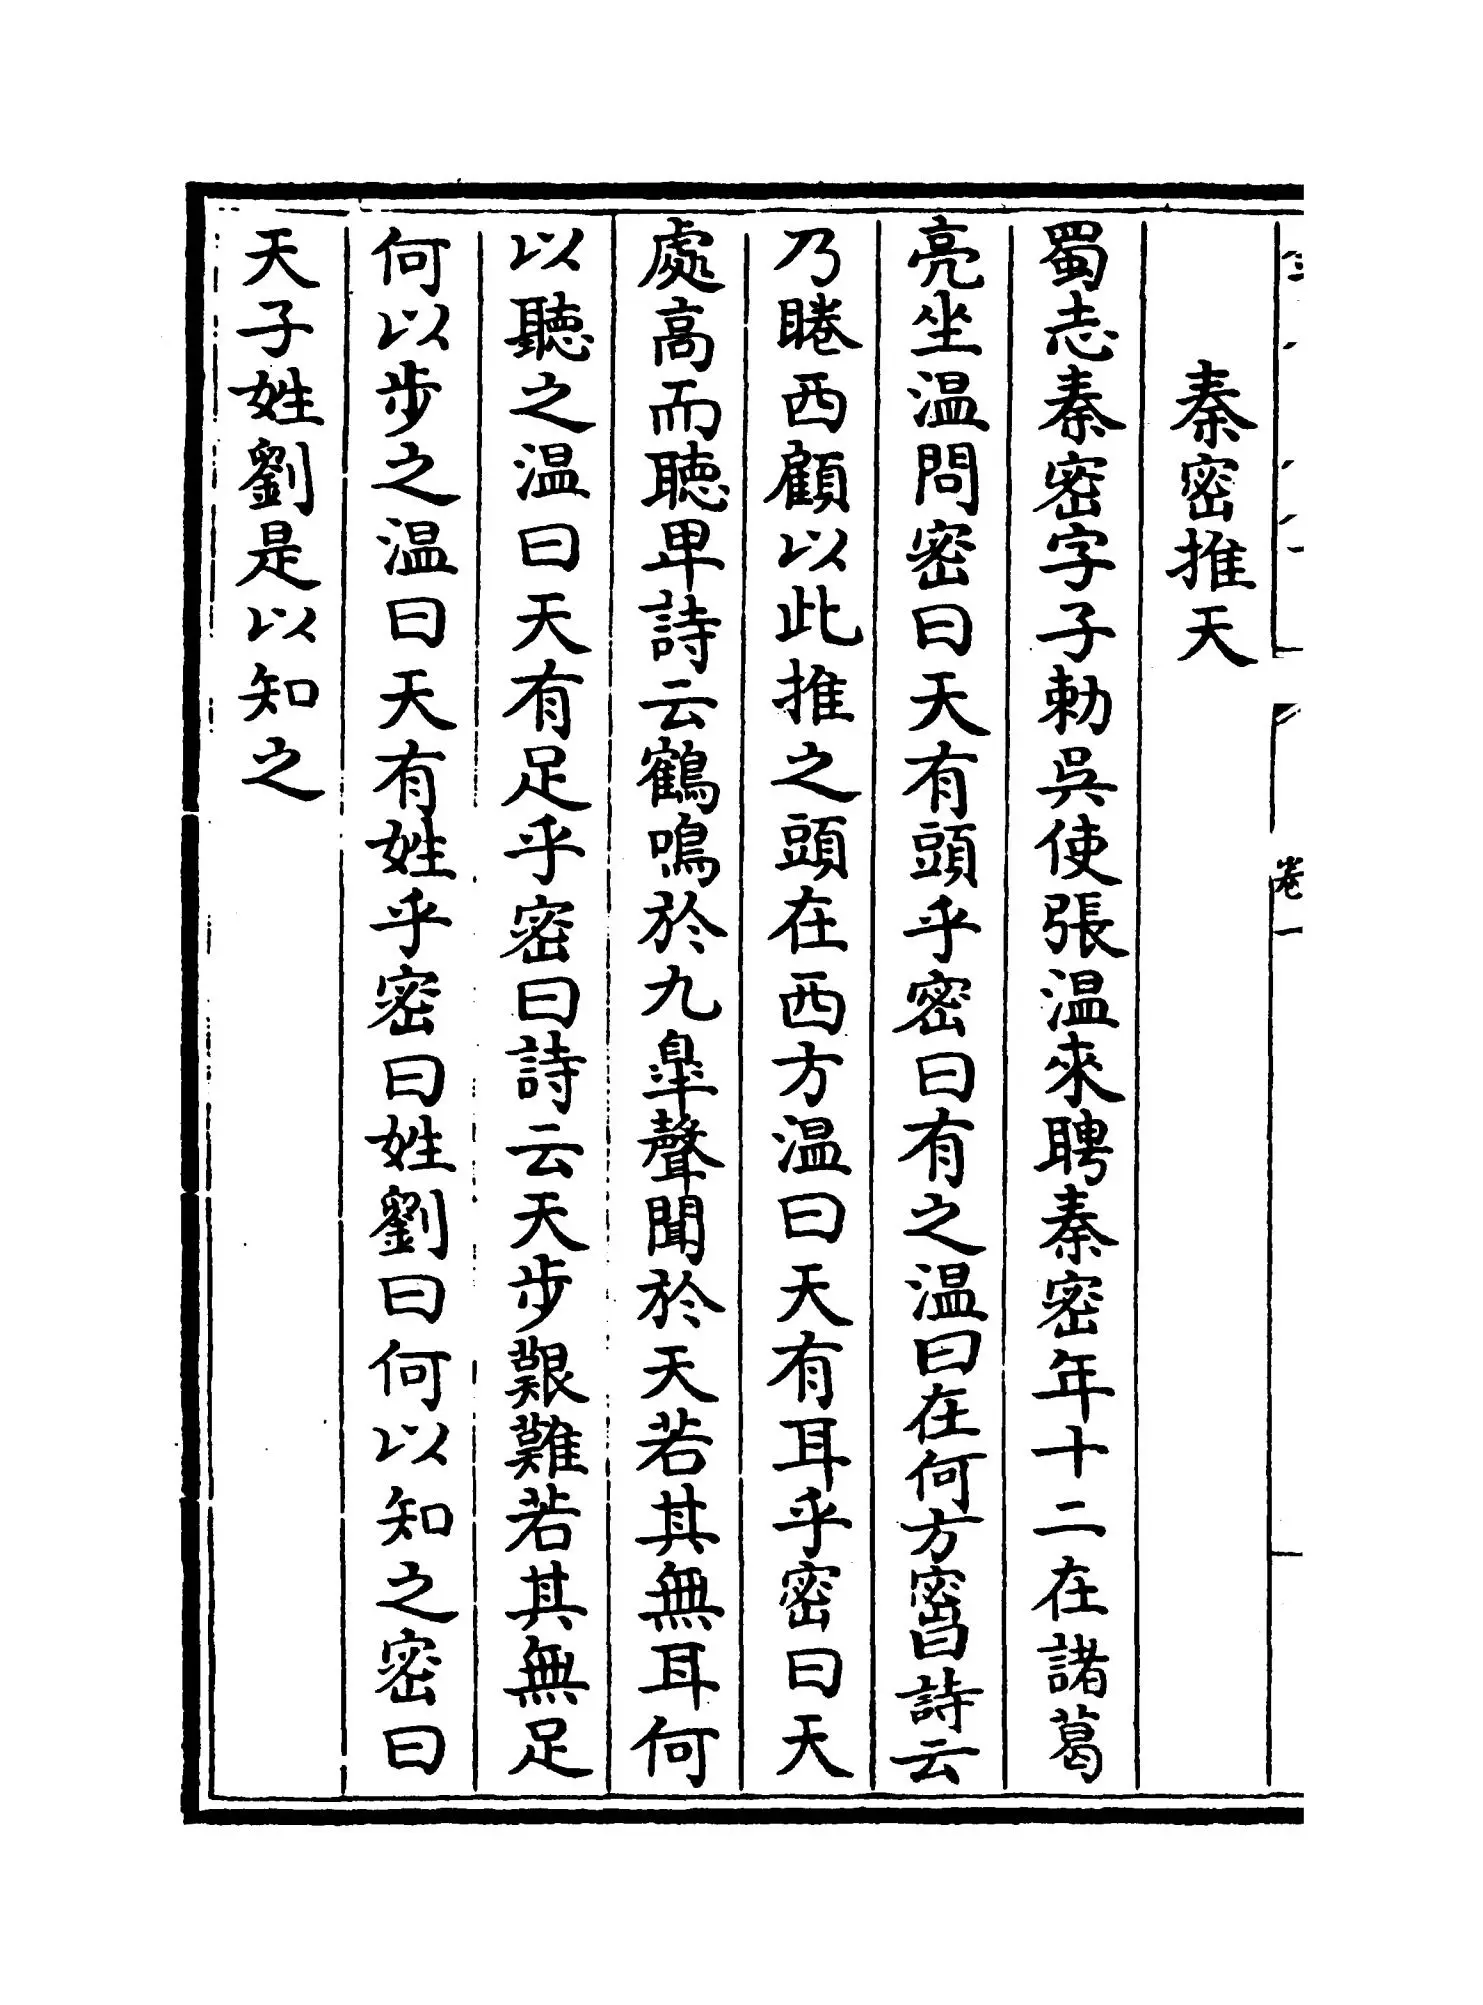 秦密推天
蜀志秦密字子勅吳使張温來聘秦密年十二在諸葛
亮坐温問密曰天有頭乎密曰有之温曰在何方密曰詩云
乃睠西顧以此推之頭在西方温曰天有耳乎密曰天
處高而聽卑詩云鶴鳴於九臯聲聞於天若其無耳何
以聽之温曰天有足乎密曰詩云天步艱難若其無足
何以步之温曰天有姓乎密曰姓劉曰何以知之密曰
天子姓劉是以知之
卷一